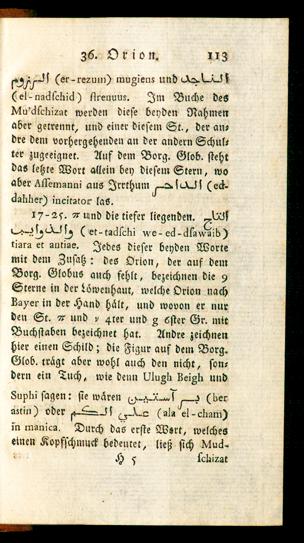 36. Orion. 113
المرزوم (er-rezum) mugiens und الناجد
(el-nadschid) strenuus. Im Buche des
Mu'dschizat werden diese beyden Nahmen
aber getrennt, und einer diesem St., der an-
dre dem vorhergehenden an der andern Schul-
ter zugeeignet. Auf dem Borg. Glob. steht
das letzte Wort allein bey diesem Stern, wo
aber Assemanni aus Irrthum الداحر (ed-
dahher) incitator las.
17-25. π und die tiefer liegenden. التاج
والذوايب (et-tadschi we-ed-dsawaib)
tiara et antiae. Jedes dieser beyden Worte
mit dem Zusatz: des Orion, der auf dem
Borg. Globus auch fehlt, bezeichnen die 9
Sterne in der Löwenhaut, welche Orion nach
Bayer in der Hand hält, und wovon er nur
den St. π und ν 4ter und g 6ster Gr. mit
Buchstaben bezeichnet hat. Andre zeichnen
hier einen Schild; die Figur auf dem Borg.
Glob. trägt aber wohl auch den nicht, son-
dern ein Tuch, wie denn Ulugh Beigh und
Suphi sagen: sie wären بر آستين (ber
astin) oder علي الكم (ala el-cham)
in manica. Durch das erste Wort, welches
einen Kopfschmuck bedeutet, ließ sich Mud-
H 5 schizat